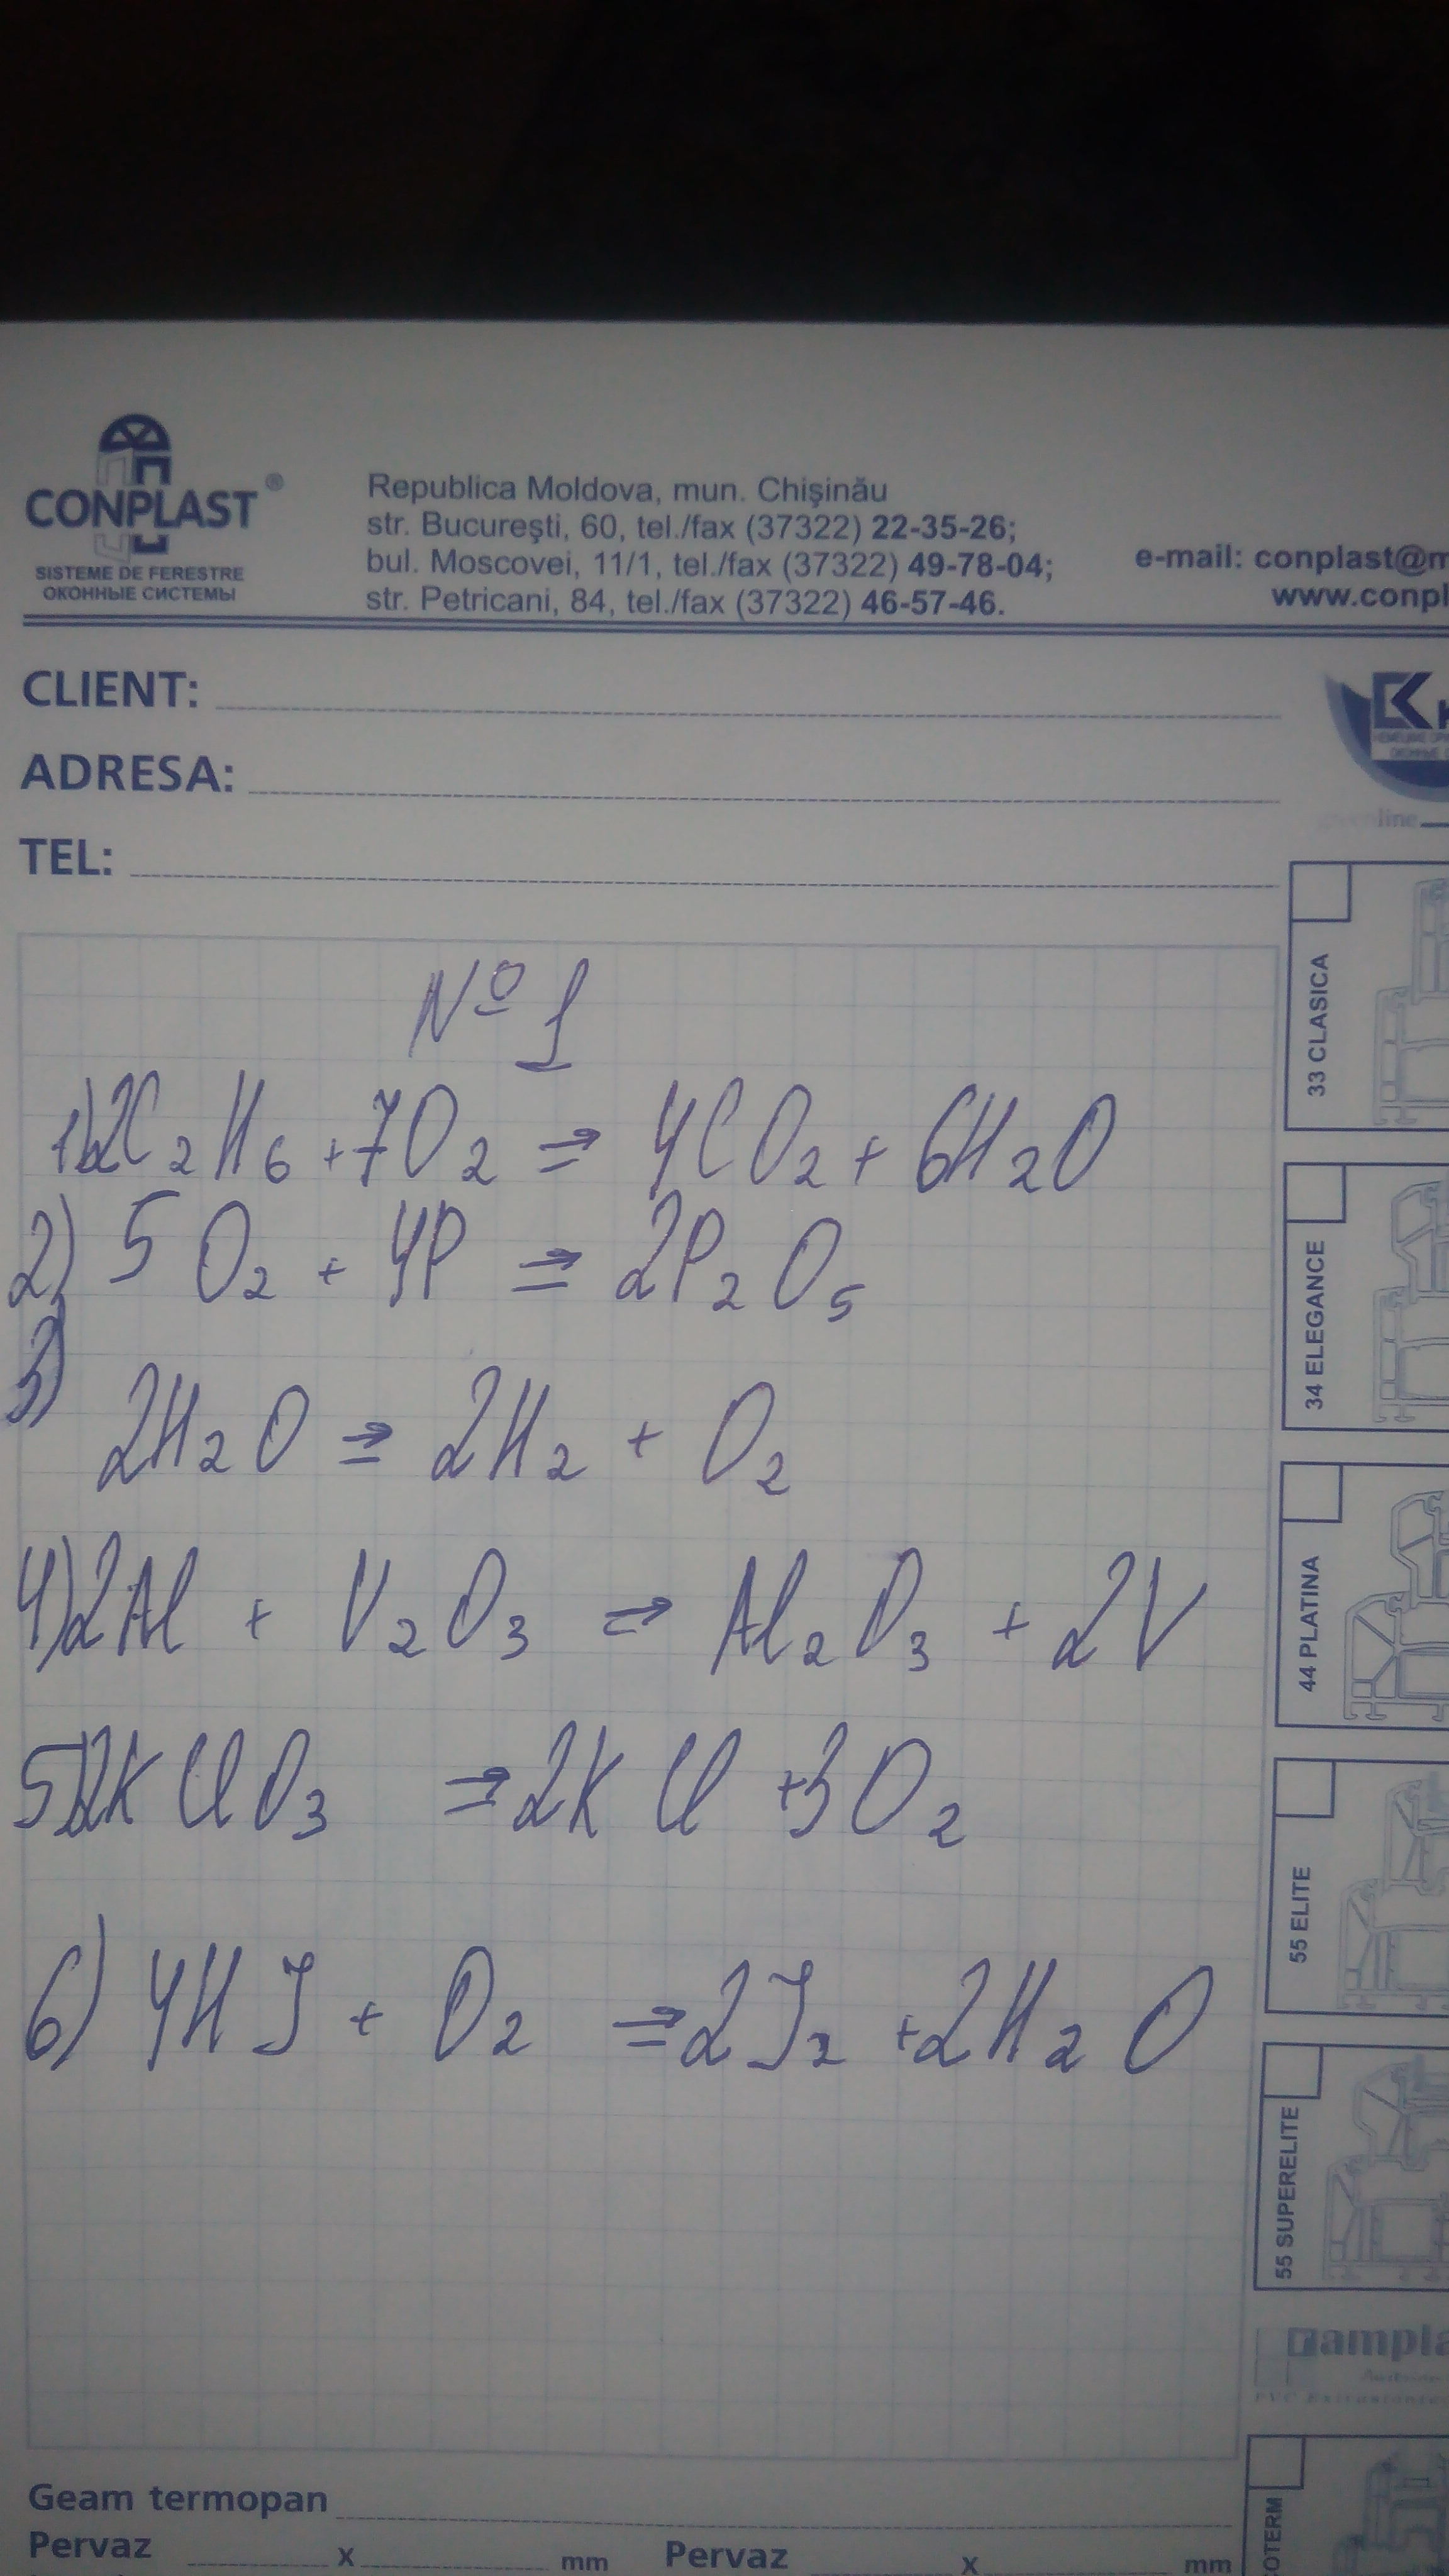 CONPLAST ®
SISTEME DE FERESTRE
ОКОННЫЕ СИСТЕМЫ
Republica Moldova, mun. Chişinău
str. Bucureşti, 60, tel./fax (37322) 22-35-26;
bul. Moscovei, 11/1, tel./fax (37322) 49-78-04;
str. Petricani, 84, tel./fax (37322) 46-57-46.
e-mail: conplast@m
www.conpl
CLIENT:
ADRESA:
TEL:
line
№ 1
1) 2C₂H₆ + 7O₂ ⇒ 4CO₂ + 6H₂O
2) 5O₂ + 4P ⇒ 2P₂O₅
3) 2H₂O ⇒ 2H₂ + O₂
4) 2Al + V₂O₃ ⇒ Al₂O₃ + 2V
5) 2KClO₃ ⇒ 2KCl + 3O₂
6) 4HJ + O₂ ⇒ 2J₂ + 2H₂O
33 CLASICA
34 ELEGANCE
44 PLATINA
55 ELITE
55 SUPERELITE
rampla
OTERM
Geam termopan
Pervaz x mm Pervaz x mm